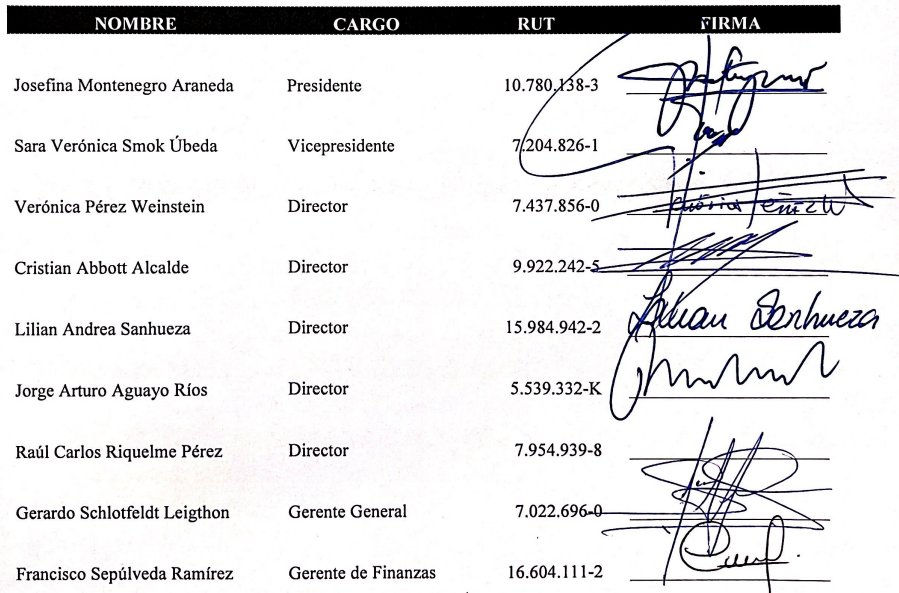 NOMBRE CARGO RUT FIRMA
Josefina Montenegro Araneda Presidente 10.780.138-3
Sara Verónica Smok Úbeda Vicepresidente 7.204.826-1
Verónica Pérez Weinstein Director 7.437.856-0
Cristian Abbott Alcalde Director 9.922.242-5
Lilian Andrea Sanhueza Director 15.984.942-2 Lilian Sanhueza
Jorge Arturo Aguayo Ríos Director 5.539.332-K
Raúl Carlos Riquelme Pérez Director 7.954.939-8
Gerardo Schlotfeldt Leigthon Gerente General 7.022.696-0
Francisco Sepúlveda Ramírez Gerente de Finanzas 16.604.111-2